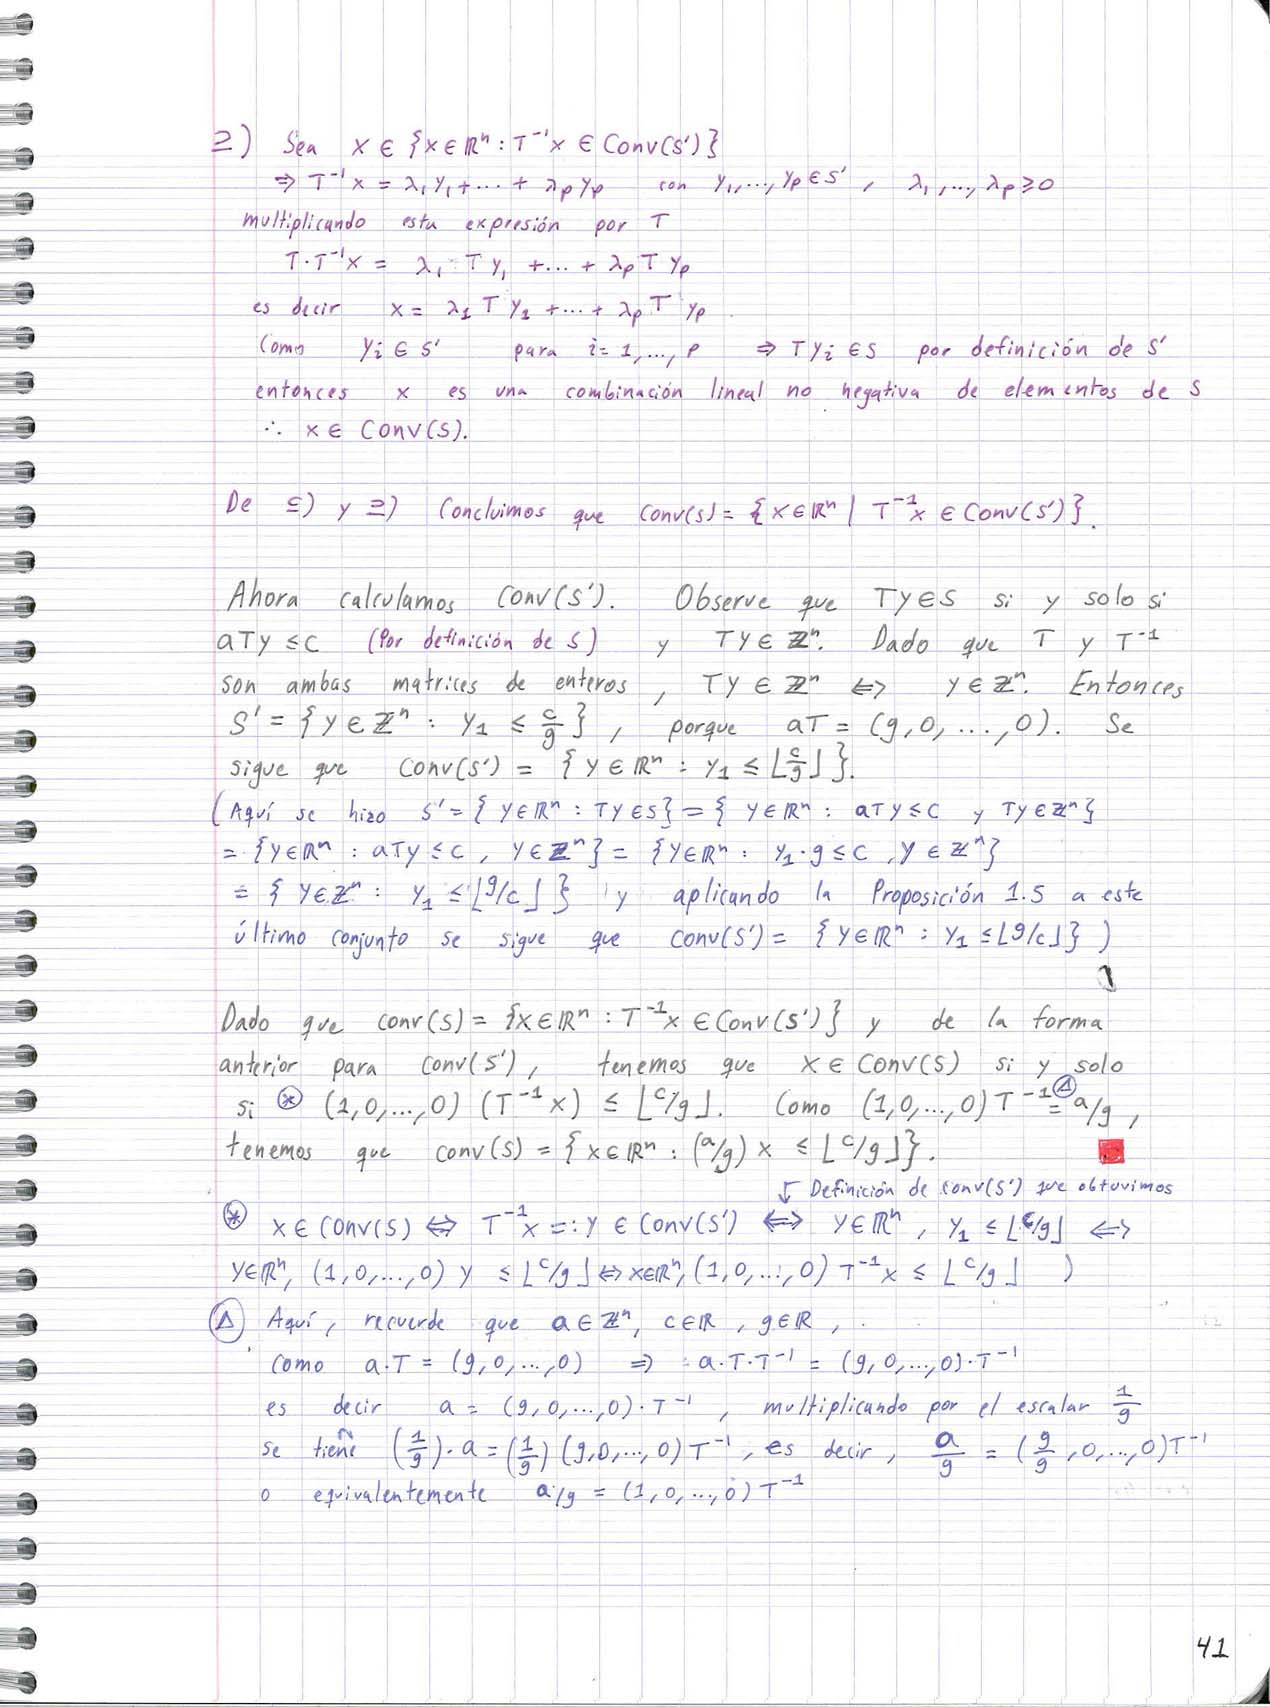 ⊇) Sea x ∈ {x ∈ ℝⁿ : T⁻¹x ∈ Conv(S')}
⇒ T⁻¹x = λ₁y₁ + ... + λₚyₚ con y₁, ..., yₚ ∈ S' , λ₁, ..., λₚ ≥ 0
multiplicando esta expresión por T
T·T⁻¹x = λ₁ T y₁ + ... + λₚ T yₚ
es decir x = λ₁ T y₁ + ... + λₚ T yₚ.
Como yᵢ ∈ S' para i = 1, ..., p ⇒ T yᵢ ∈ S por definición de S'
entonces x es una combinación lineal no negativa de elementos de S
∴ x ∈ Conv(S).
De ⊆) y ⊇) Concluimos que conv(s) = {x ∈ ℝⁿ | T⁻¹x ∈ Conv(S')}.
Ahora calculamos conv(S'). Observe que Ty ∈ S si y solo si
aTy ≤ c (Por definición de S) y Ty ∈ ℤⁿ. Dado que T y T⁻¹
son ambas matrices de enteros, Ty ∈ ℤⁿ ⇔ y ∈ ℤⁿ. Entonces
S' = {y ∈ ℤⁿ : y₁ ≤ c/g}, porque aT = (g, 0, ..., 0). Se
sigue que conv(S') = {y ∈ ℝⁿ : y₁ ≤ ⌊c/g⌋}.
(Aquí se hizo S' = {y ∈ ℝⁿ : Ty ∈ S} = {y ∈ ℝⁿ : aTy ≤ c y Ty ∈ ℤⁿ}
= {y ∈ ℝⁿ : aTy ≤ c, y ∈ ℤⁿ} = {y ∈ ℝⁿ : y₁·g ≤ c, y ∈ ℤⁿ}
= {y ∈ ℤⁿ : y₁ ≤ ⌊g/c⌋} y aplicando la Proposición 1.5 a este
último conjunto se sigue que conv(S') = {y ∈ ℝⁿ : y₁ ≤ ⌊g/c⌋} )
Dado que conv(s) = {x ∈ ℝⁿ : T⁻¹x ∈ Conv(S')} y de la forma
anterior para conv(S'), tenemos que x ∈ conv(S) si y solo
si ⊛ (1, 0, ..., 0) (T⁻¹x) ≤ ⌊c/g⌋. Como (1, 0, ..., 0) T⁻¹ =Ⓐ a/g,
tenemos que conv(s) = {x ∈ ℝⁿ : (a/g) x ≤ ⌊c/g⌋}.
↓ Definición de conv(S') que obtuvimos
⊛ x ∈ Conv(S) ⇔ T⁻¹x =: y ∈ Conv(S') ⇔ y ∈ ℝⁿ, y₁ ≤ ⌊c/g⌋ ⇔
y ∈ ℝⁿ, (1, 0, ..., 0) y ≤ ⌊c/g⌋ ⇔ x ∈ ℝⁿ, (1, 0, ..., 0) T⁻¹x ≤ ⌊c/g⌋ )
Ⓐ Aquí, recuerde que a ∈ ℤⁿ, c ∈ ℝ, g ∈ ℝ,
como a·T = (g, 0, ..., 0) ⇒ a·T·T⁻¹ = (g, 0, ..., 0)·T⁻¹
es decir a = (g, 0, ..., 0)·T⁻¹, multiplicando por el escalar 1/g
se tiene (1/g)·a = (1/g) (g, 0, ..., 0) T⁻¹, es decir, a/g = (g/g, 0, ..., 0) T⁻¹
o equivalentemente a/g = (1, 0, ..., 0) T⁻¹
41